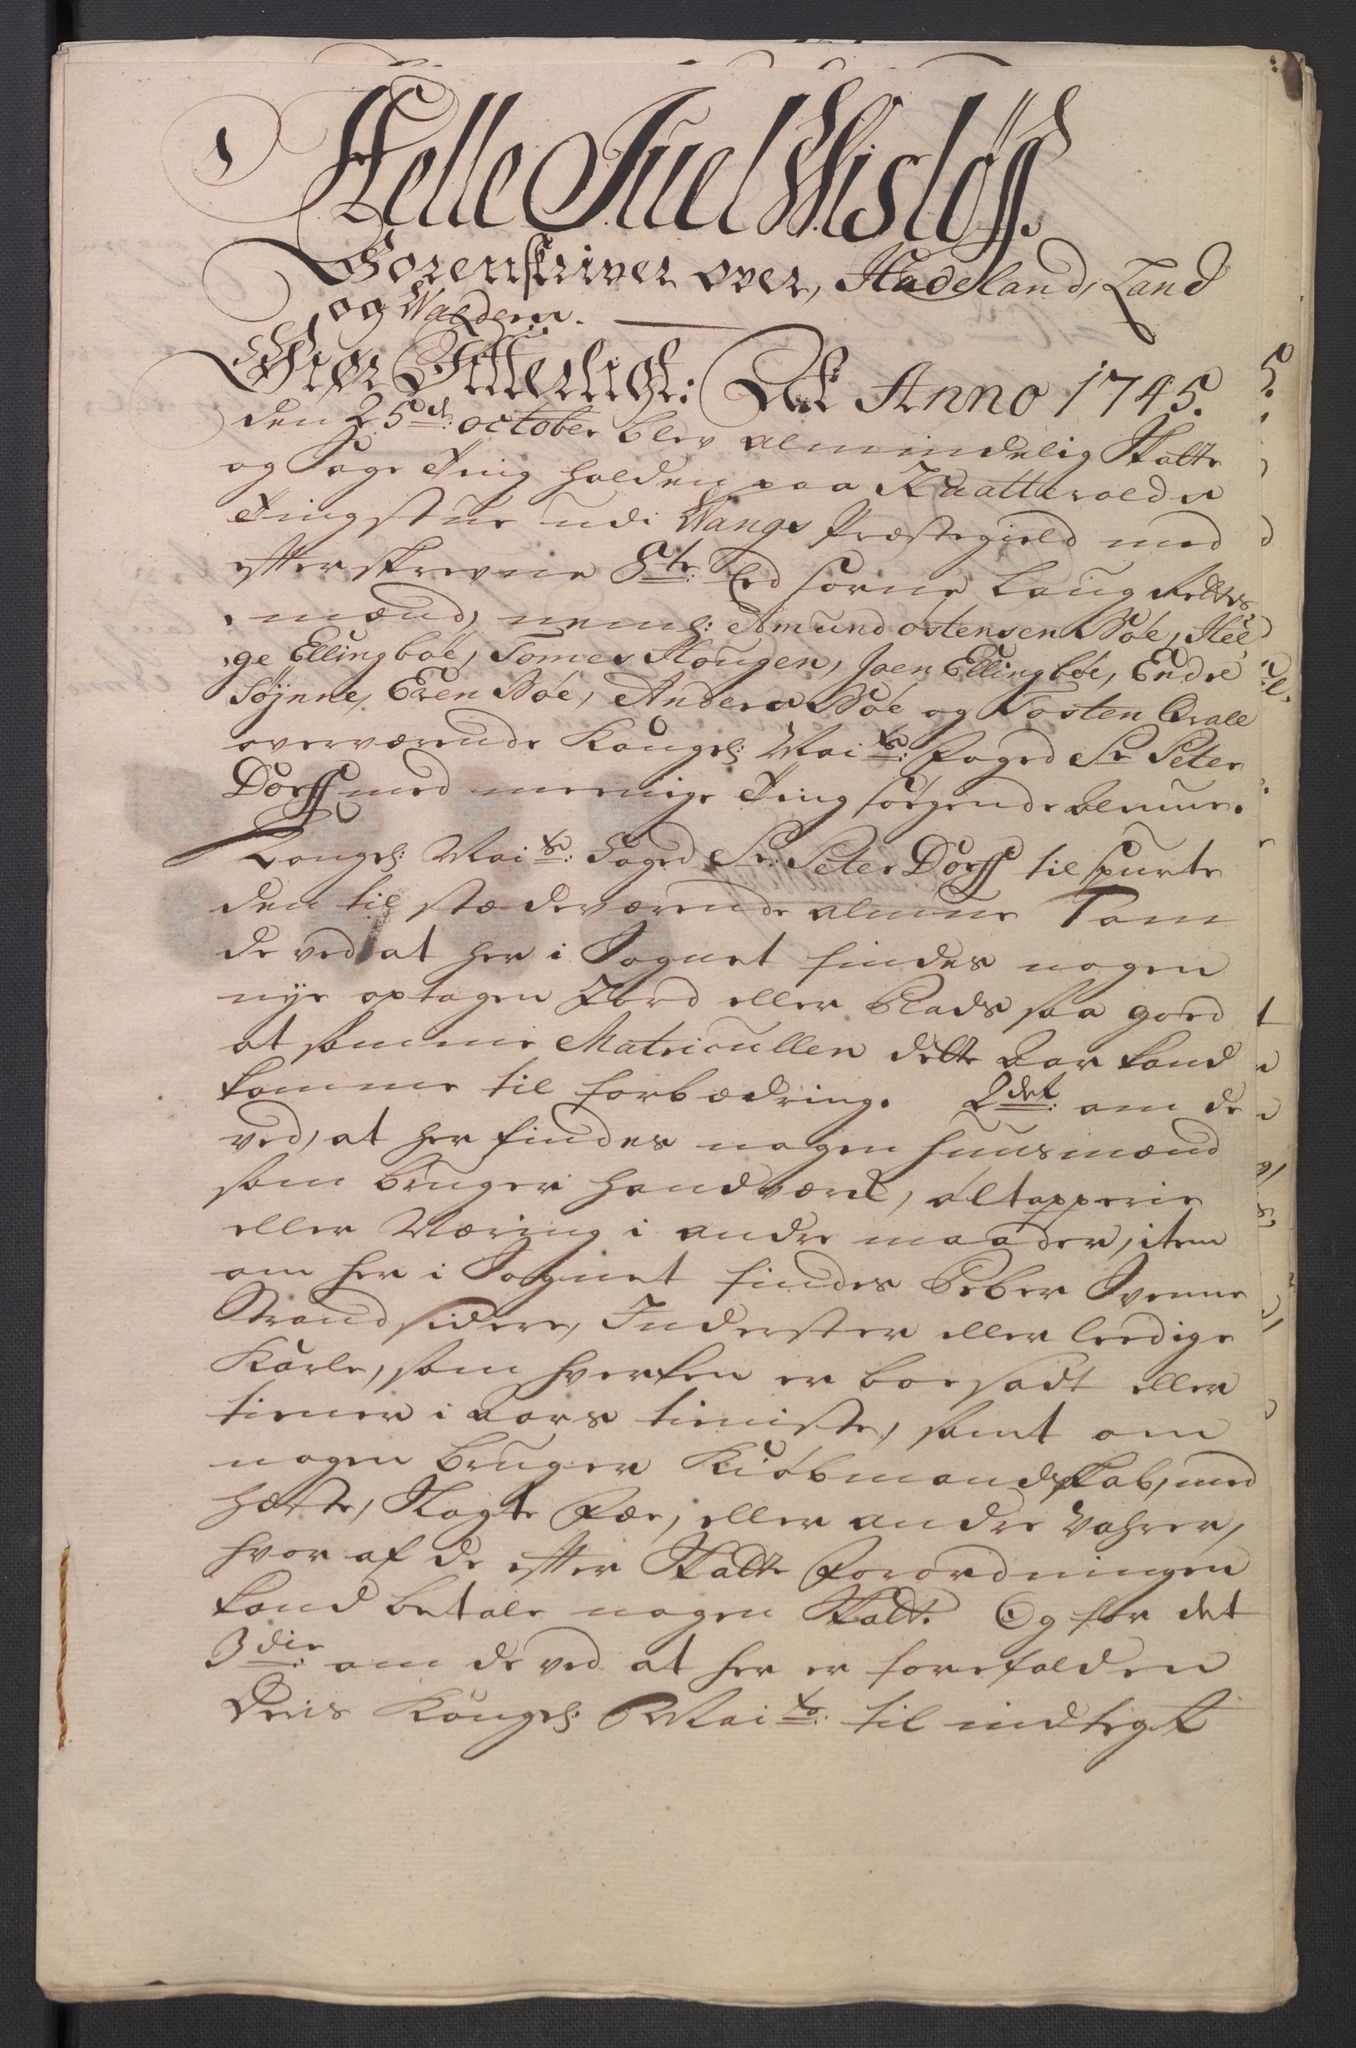 Helle Juel Wisløff.
Sorenskriver over, Hadeland, Land
og Walders.
Giør Vitterligt: At Anno 1745.
den 25de: october blev almindelig Skatte
og Sage Ting holden paa Kaatterolds
Tingstue udi Wangs Præstegield med
efterskrevne 8te: Ed sorne Laug Rettes
mænd, neml: Amund Østensen Bøe, Hel,
ge Ellingbøe, Tomes Hougen, Joen Ellingbøe, Endre
Søjnne, Even Bøe, Anders Bøe og Tosten Qvale
overværende Kongel: Mai ts: Foged Sr Peter
Dorff med meenige Ting søgende Almue.
Kongel: Mai ts: Foged Sr: Peter Dorff til spurte
den til stædeværende almue 1 om
de ved, at her i Sognet findes nogen
nye optagen Jord eller Plads saa goed
at samme Matricullen dette Aar kand
komme til forbædring. 2det: om de
ved, at her findes nogen huusmænd
som bruger handværk, øltapperie
eller Næring i andre maader, item
om her i Sognet findes Peber Svenne
Strandsidere, Inderster eller leedige
Karle, som hverken er boesadt eller
tiener i Aars tieniste, samt om
nogen bruger Kiøbmandskab, med
hæste, Slagte Fæe, eller andre Vahrer,
hvor af de efter Skatte Forordningen
kand betale nogen Skatt. Og for det
3die: om de ved at her er forefalden
Deris Kongel: Mai ts: til indtegt